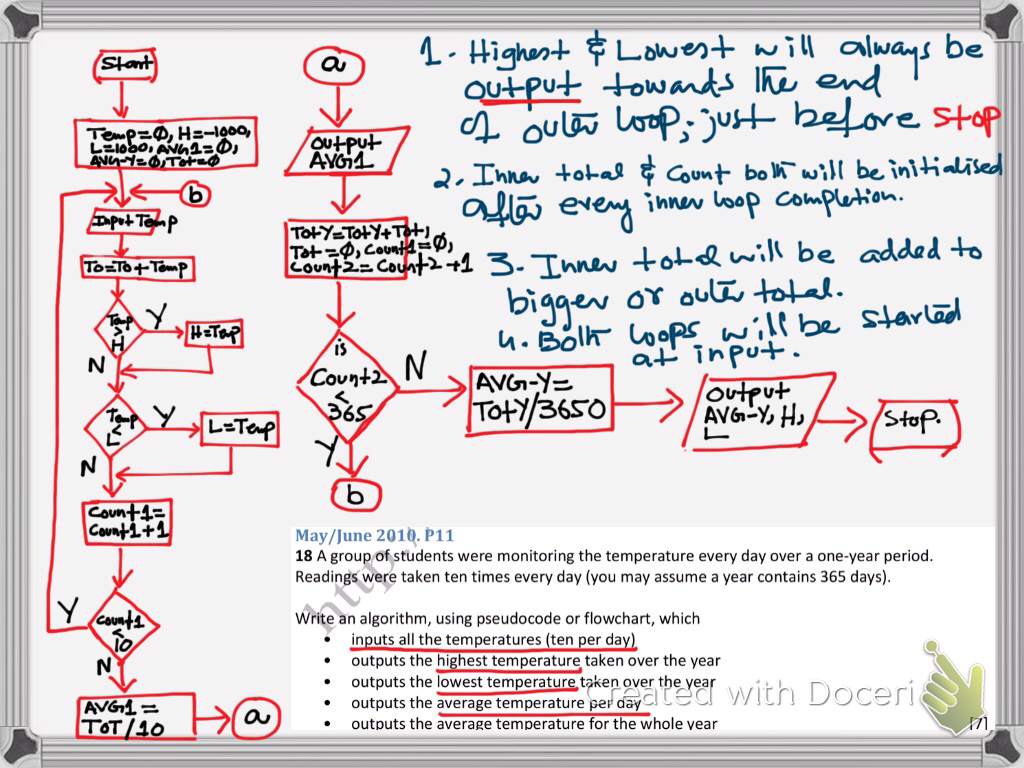 Start
Temp=0, H=-1000,
L=1000, AVG1=0,
AVG-Y=0, Tot=0
b
Input Temp
To=To+Temp
Temp
>
H
Y
H=Temp
N
Temp
<
L
Y
L=Temp
N
Count1=
Count1+1
Y
Count1
<
10
N
AVG1=
TOT/10
a
a
OUTPUT
AVG1
TotY=TotY+Tot,
Tot=0, Count1=0,
Count2=Count2+1
is
Count2
<
365
N
Y
b
AVG-Y=
TotY/3650
OUTPUT
AVG-Y, H,
L
Stop.
1. Highest & Lowest will always be
output towards the end
of outer loop, just before STOP
2. Inner total & Count both will be initialised
after every inner loop completion.
3. Inner total will be added to
bigger or outer total.
4. Both loops will be started
at input.
May/June 2010. P11
18 A group of students were monitoring the temperature every day over a one-year period.
Readings were taken ten times every day (you may assume a year contains 365 days).
Write an algorithm, using pseudocode or flowchart, which
• inputs all the temperatures (ten per day)
• outputs the highest temperature taken over the year
• outputs the lowest temperature taken over the year
• outputs the average temperature per day
• outputs the average temperature for the whole year
[7]
http:/
Created with Doceri